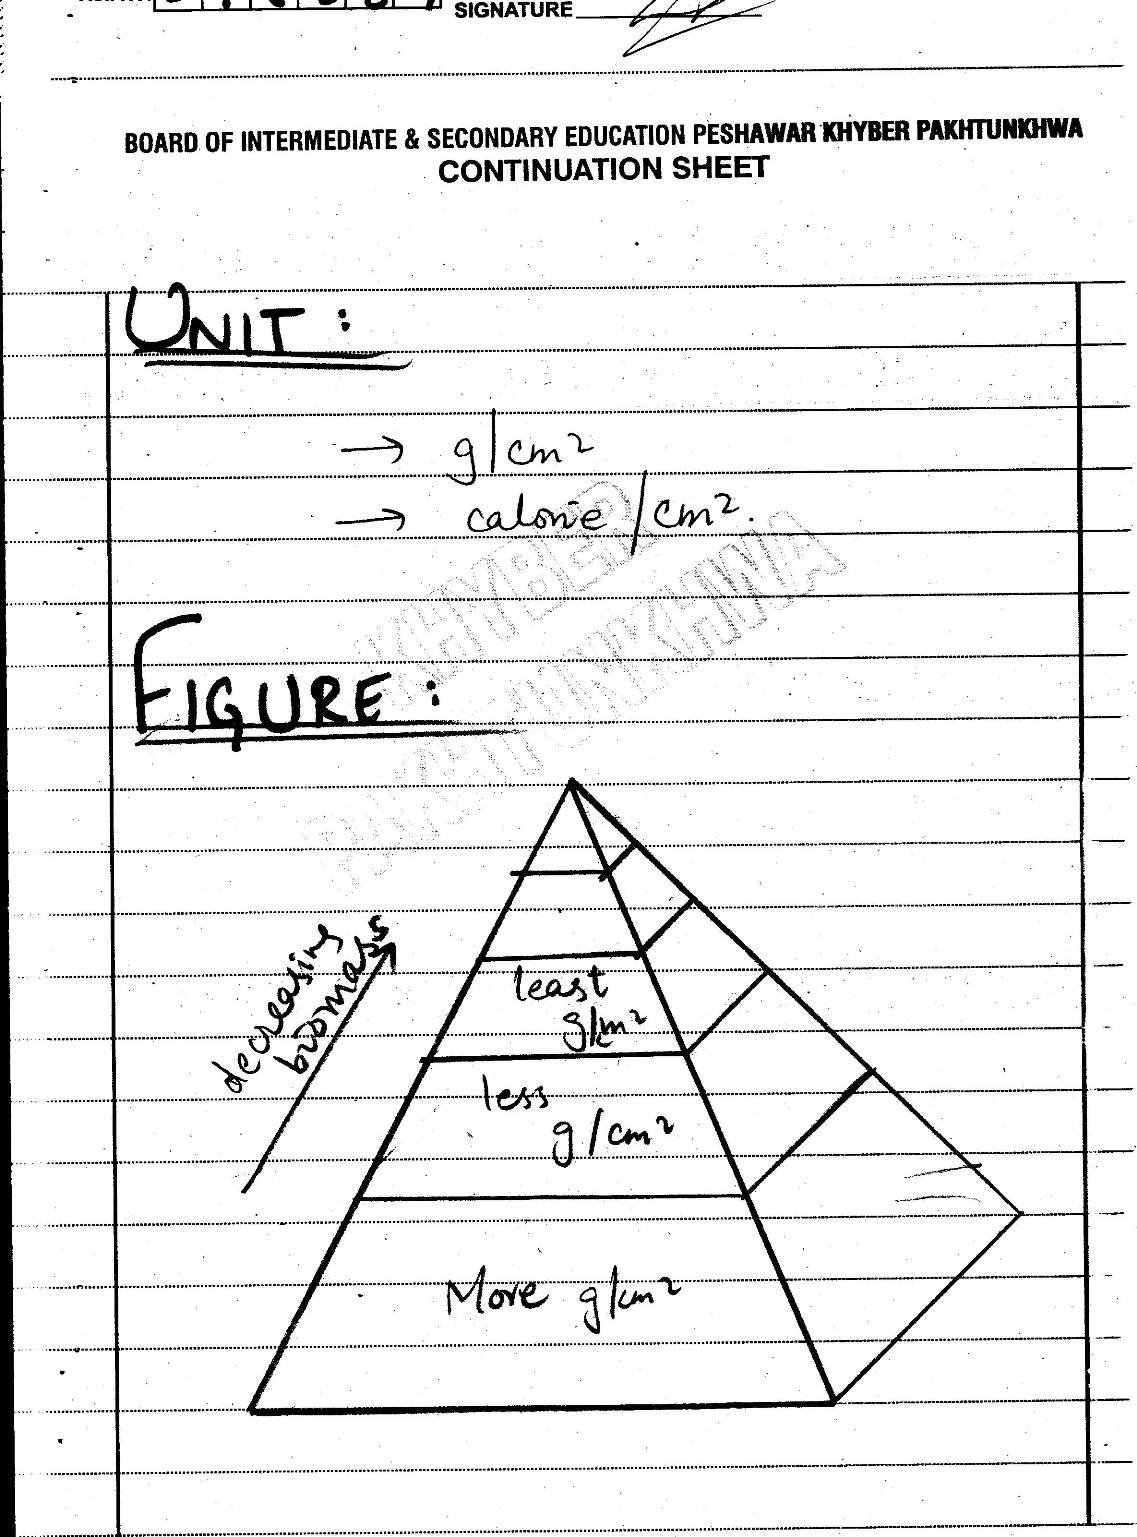 SIGNATURE
BOARD OF INTERMEDIATE & SECONDARY EDUCATION PESHAWAR KHYBER PAKHTUNKHWA
CONTINUATION SHEET
UNIT :
→ g/cm²
→ calorie/cm².
KHYBER
PAKHTUNKHWA
FIGURE :
decreasing
biomass
least
g/cm²
less
g/cm²
More g/cm²